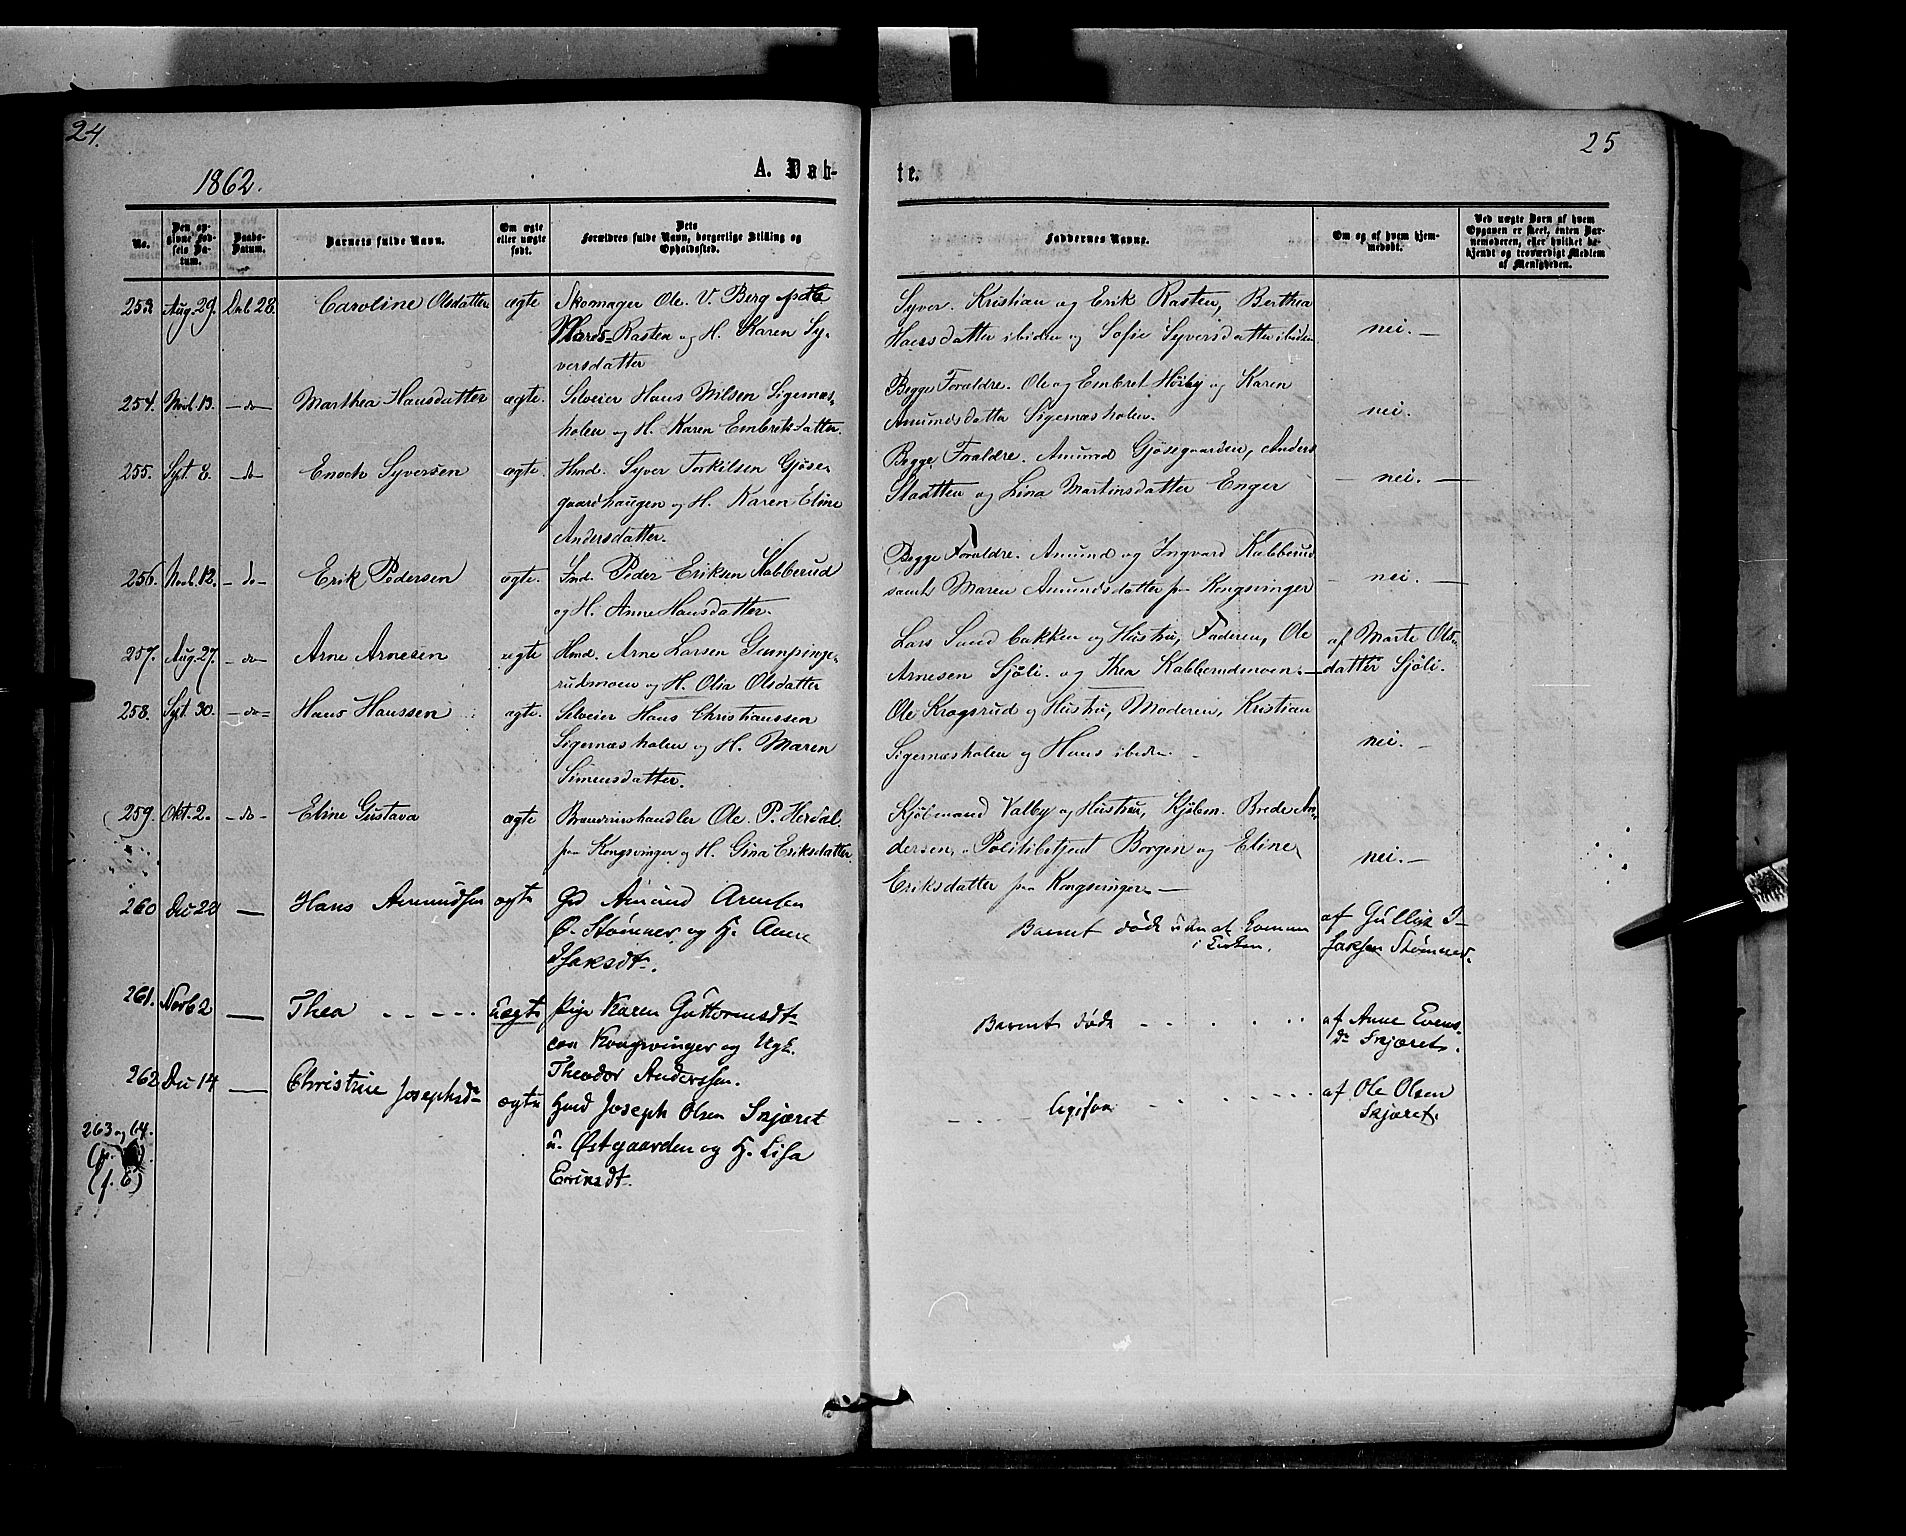 24.
25
1862.
A. Døb-
te.
No.
Den opgivne Fødsels Datum.
Daabs-Datum.
Barnets fulde Navn.
Om ægte eller uægte født.
Dets Forældres fulde Navn, borgerlige Stilling og Opholdssted.
Faddernes Navne.
Om og af hvem hjemmedøbt.
Ved uægte Børn af hvem Opgaven er skeet, enten Barnemoderen, eller hvilket bekjendt og troværdigt Medlem af Menigheden.
253. Aug. 29. Decb 28. Caroline Olsdatter ægte Skomager Ole V. Berg
Rasten og H. Karen Sy-
versdatter
Syver. Kristian og Erik Rasten, Berthea
Haersdatter ibiden og Sofie Syversdatter ibiden
nei. —
254. Novb. 13. — do — Marthea Hansdatter ægte. Selveier Hans Nilsen Sigernæs-
holen og H. Karen Embretsdatter.
Begge Forældre. Ole og Embret Høiby og Karen
Amundsdatter Sigernæsholen.
nei.
255. Sept. 8. — do — Enoch Syversen ægte. Hmd. Syver Torkilsen Gjøse-
gaardhaugen og H. Karen Eline
Andersdatter.
Begge Forældre. Amund Gjøsegaarden, Anders
Slaatten og Lina Martinsdatter Enger
— nei. —
256. Novb. 12. — do — Erik Pedersen ægte. Ind. Peder Eriksen Kabberud
og H. Anne Hansdatter.
Begge Forældre. Amund og Ingvard Kabberud
samt Maren Amundsdatter fra Kongsvinger
— nei. —
257. Aug. 27. — do — Arne Arnesen ægte Hmd. Arne Larsen Gumpinge-
rudmoen og H. Olia Olsdatter
Lars Sandbakken og Hustru, Faderen, Ole
Arnesen Sjøli og Thea Kabberudmoen. —
af Marte Ols-
datter Sjøli.
258. Sept. 30. — do — Hans Hanssen ægte. Selveier Hans Christianssen
Sigernæsholen og H. Maren
Simensdatter.
Ole Krogsrud og Hustru, Moderen, Kristian
Sigernæsholen og Hans ibiden
nei. —
259. Okt. 2. — do — Eline Gustava ægte Brændevinshandler Ole P. Herdal
fra Kongsvinger og H. Gina Eriksdatter
Kjøbmand Valby og Hustru, Kjøbm. Brede An-
dersen, Politibetjent Borgen og Eline
Eriksdatter fra Kongsvinger —
nei. —
260 Dec 22 — Hans Amundsen ægte Gd Amund Arnesen
Ø. Stømner og H. Anne
Isaksdt.
Barnet døde uden at komme
i Kirken.
af Gullik I-
saksen Stømner.
261. Novb 2 — Thea - - - - - uægte Pige Karen Guttormsdt
Kongsvinger og Ugk.
Theodor Anderssen.
Barnet døde
af Anne Evens-
dt Skjæret.
262 Dec 14 — Christine Josephsdt ægte Hmd Joseph Olsen Skjæret
u. Østgaarden og H. Lisa
Eriksdt.
ligesom
af Ole Olsen
Skjæret.
263 og 64.
(p. 6)